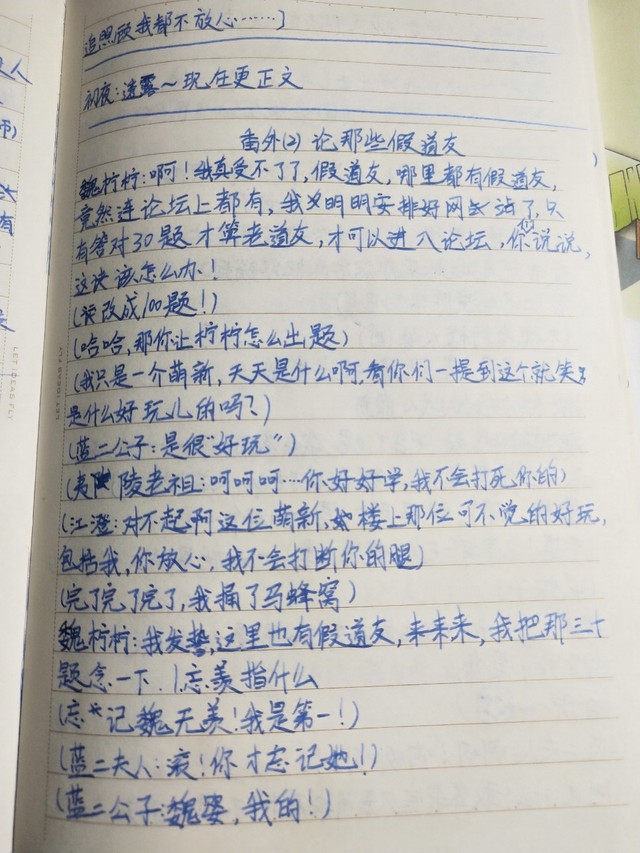 追照顾我都不放心……]
初夜:透露~现任更正文
番外(2) 论那些假道友
魏柠柠:啊!我真受不了了,假道友,哪里都有假道友,
竟然连论坛上都有,我明明安排好网站了,只
有答对30题才算老道友,才可以进入论坛,你们说说,
这该怎么办!
(改成100题!)
(哈哈,那你让柠柠怎么出题)
(我只是一个萌新,天天是什么啊,看你们一提到这个就笑
是什么好玩儿的吗?)
(蓝二公子:是很"好玩")
(夷陵老祖:呵呵呵…你好好学,我不会打死你的)
(江澄:对不起啊这位萌新,楼上那位可不觉的好玩,
包括我,你放心,我不会打断你的腿)
(完了完了完了,我捅了马蜂窝)
魏柠柠:我发,这里也有假道友,来来来,我把那三十
题念一下.1.忘羡指什么
(忘记魏无羡!我是第一!)
(蓝二夫人:滚!你才忘记她!)
(蓝二公子:魏婆,我的!)
人
师)
有
LET IDEAS FLY